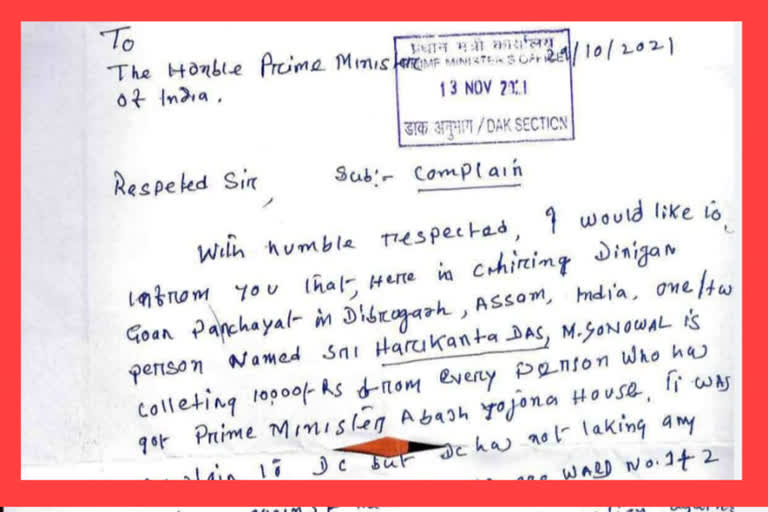 To
The Honble Prime Minister 29/10/2021
of India.
प्रधान मंत्री कार्यालय
PRIME MINISTER'S OFFICE
13 NOV 2021
डाक अनुभाग / DAK SECTION
Respeted Sir, Sub:- Complain
With humble respected, I would like to
infrom you that, Here in Chiring Dinigan
Goan Panchayat in Dibrugarh, Assam, India, one/tw
person Named Sri Harikanta DAS, M. SONOWAL is
colleting 10,000/- Rs from every person who ha
got Prime Minister Abash yojona House. It was
to DC but DC has not taking any
WARD No. 1 & 2